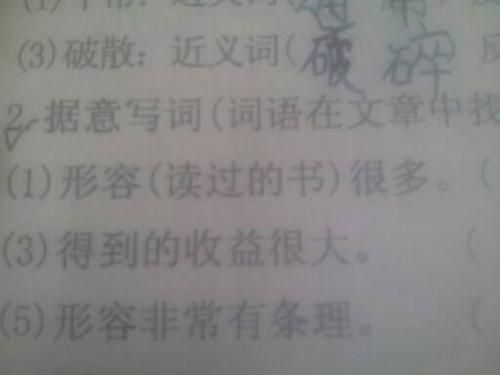 (1)平常:近义词(通常) 反
(3)破散:近义词(破碎 反
2.据意写词(词语在文章中找
(1)形容(读过的书)很多。(
(3)得到的收益很大。 (
(5)形容非常有条理。 (